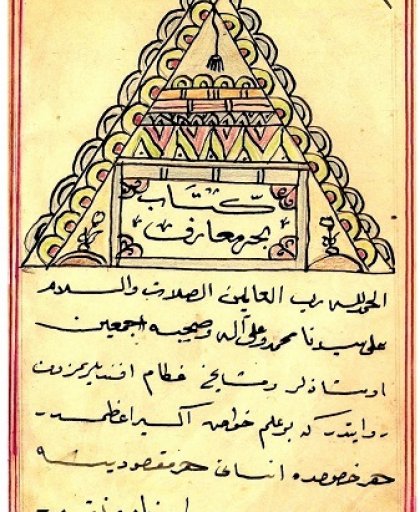 كتاب
بحر معارف
الحمد لله رب العالمين الصلات والسلام
على سيدنا محمد وعلى آله وصحبه اجمعين
اوستاذلر ومشايخ عظام افنديلريمزدن
روايتدر كه بو علم خواص اكسير اعظمدر
هر خصوصده انسانى هر مقصودينه